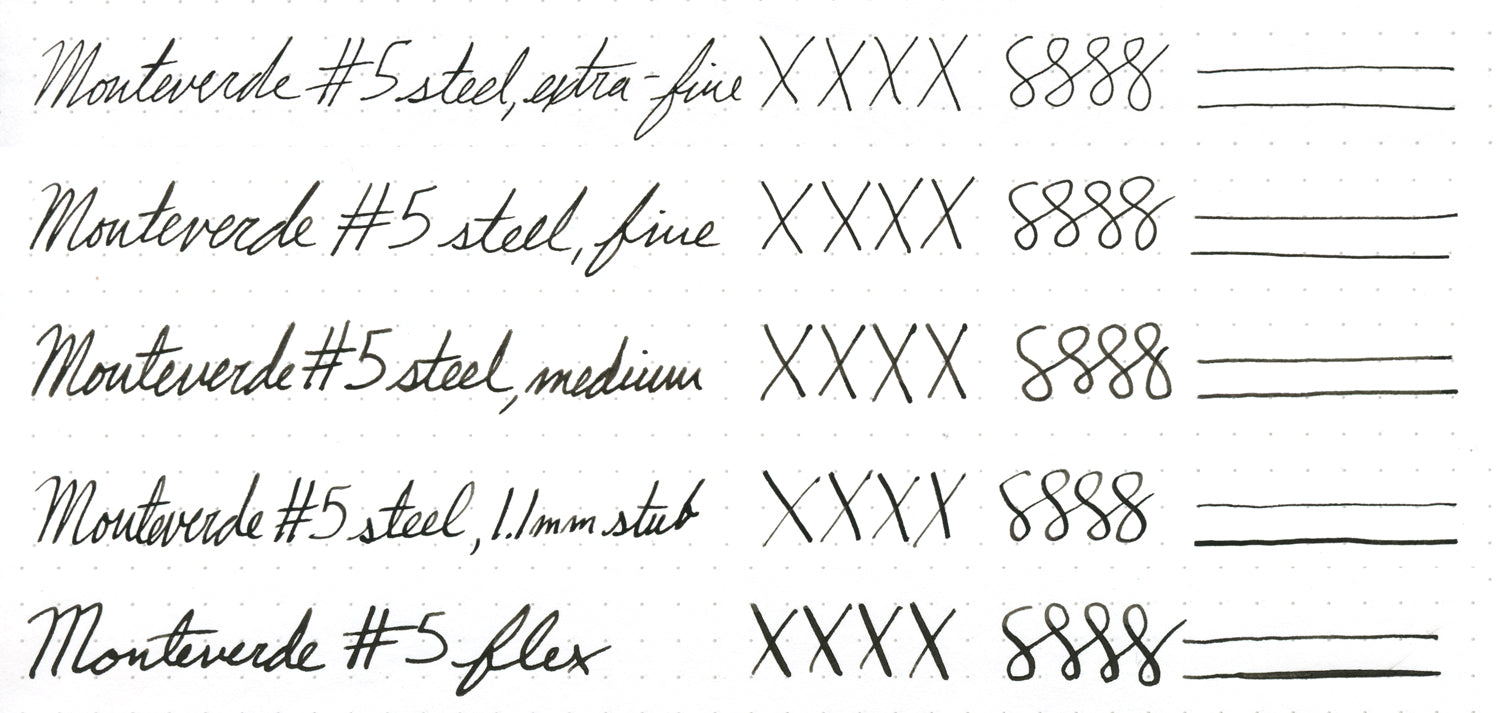 Monteverde #5 steel, extra-fine XXXX 8888
Monteverde #5 steel, fine XXXX 8888
Monteverde #5 steel, medium XXXX 8888
Monteverde #5 steel, 1.1mm stub XXXX 8888
Monteverde #5 flex XXXX 8888